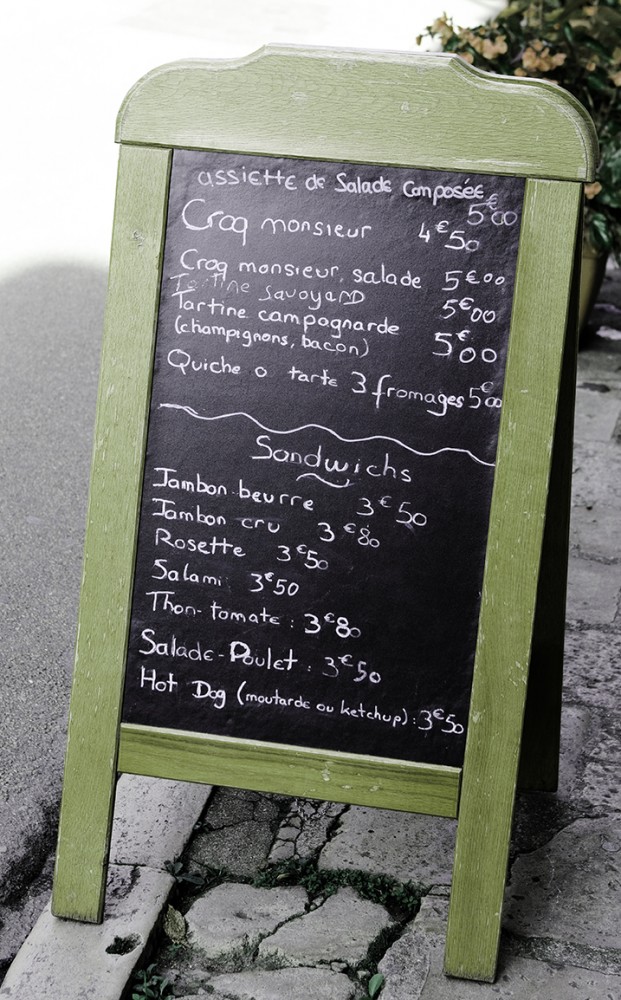 assiette de Salade Composée 5€00
Croq monsieur 4€50
Croq monsieur, salade 5€00
Tartine savoyarD 5€00
Tartine campagnarde
(champignons, bacon) 5€00
Quiche o tarte 3 fromages 5€00
Sandwichs
Jambon-beurre 3€50
Jambon cru 3€80
Rosette 3€50
Salami 3€50
Thon-tomate : 3€80
Salade-Poulet : 3€50
Hot Dog (moutarde ou ketchup) : 3€50